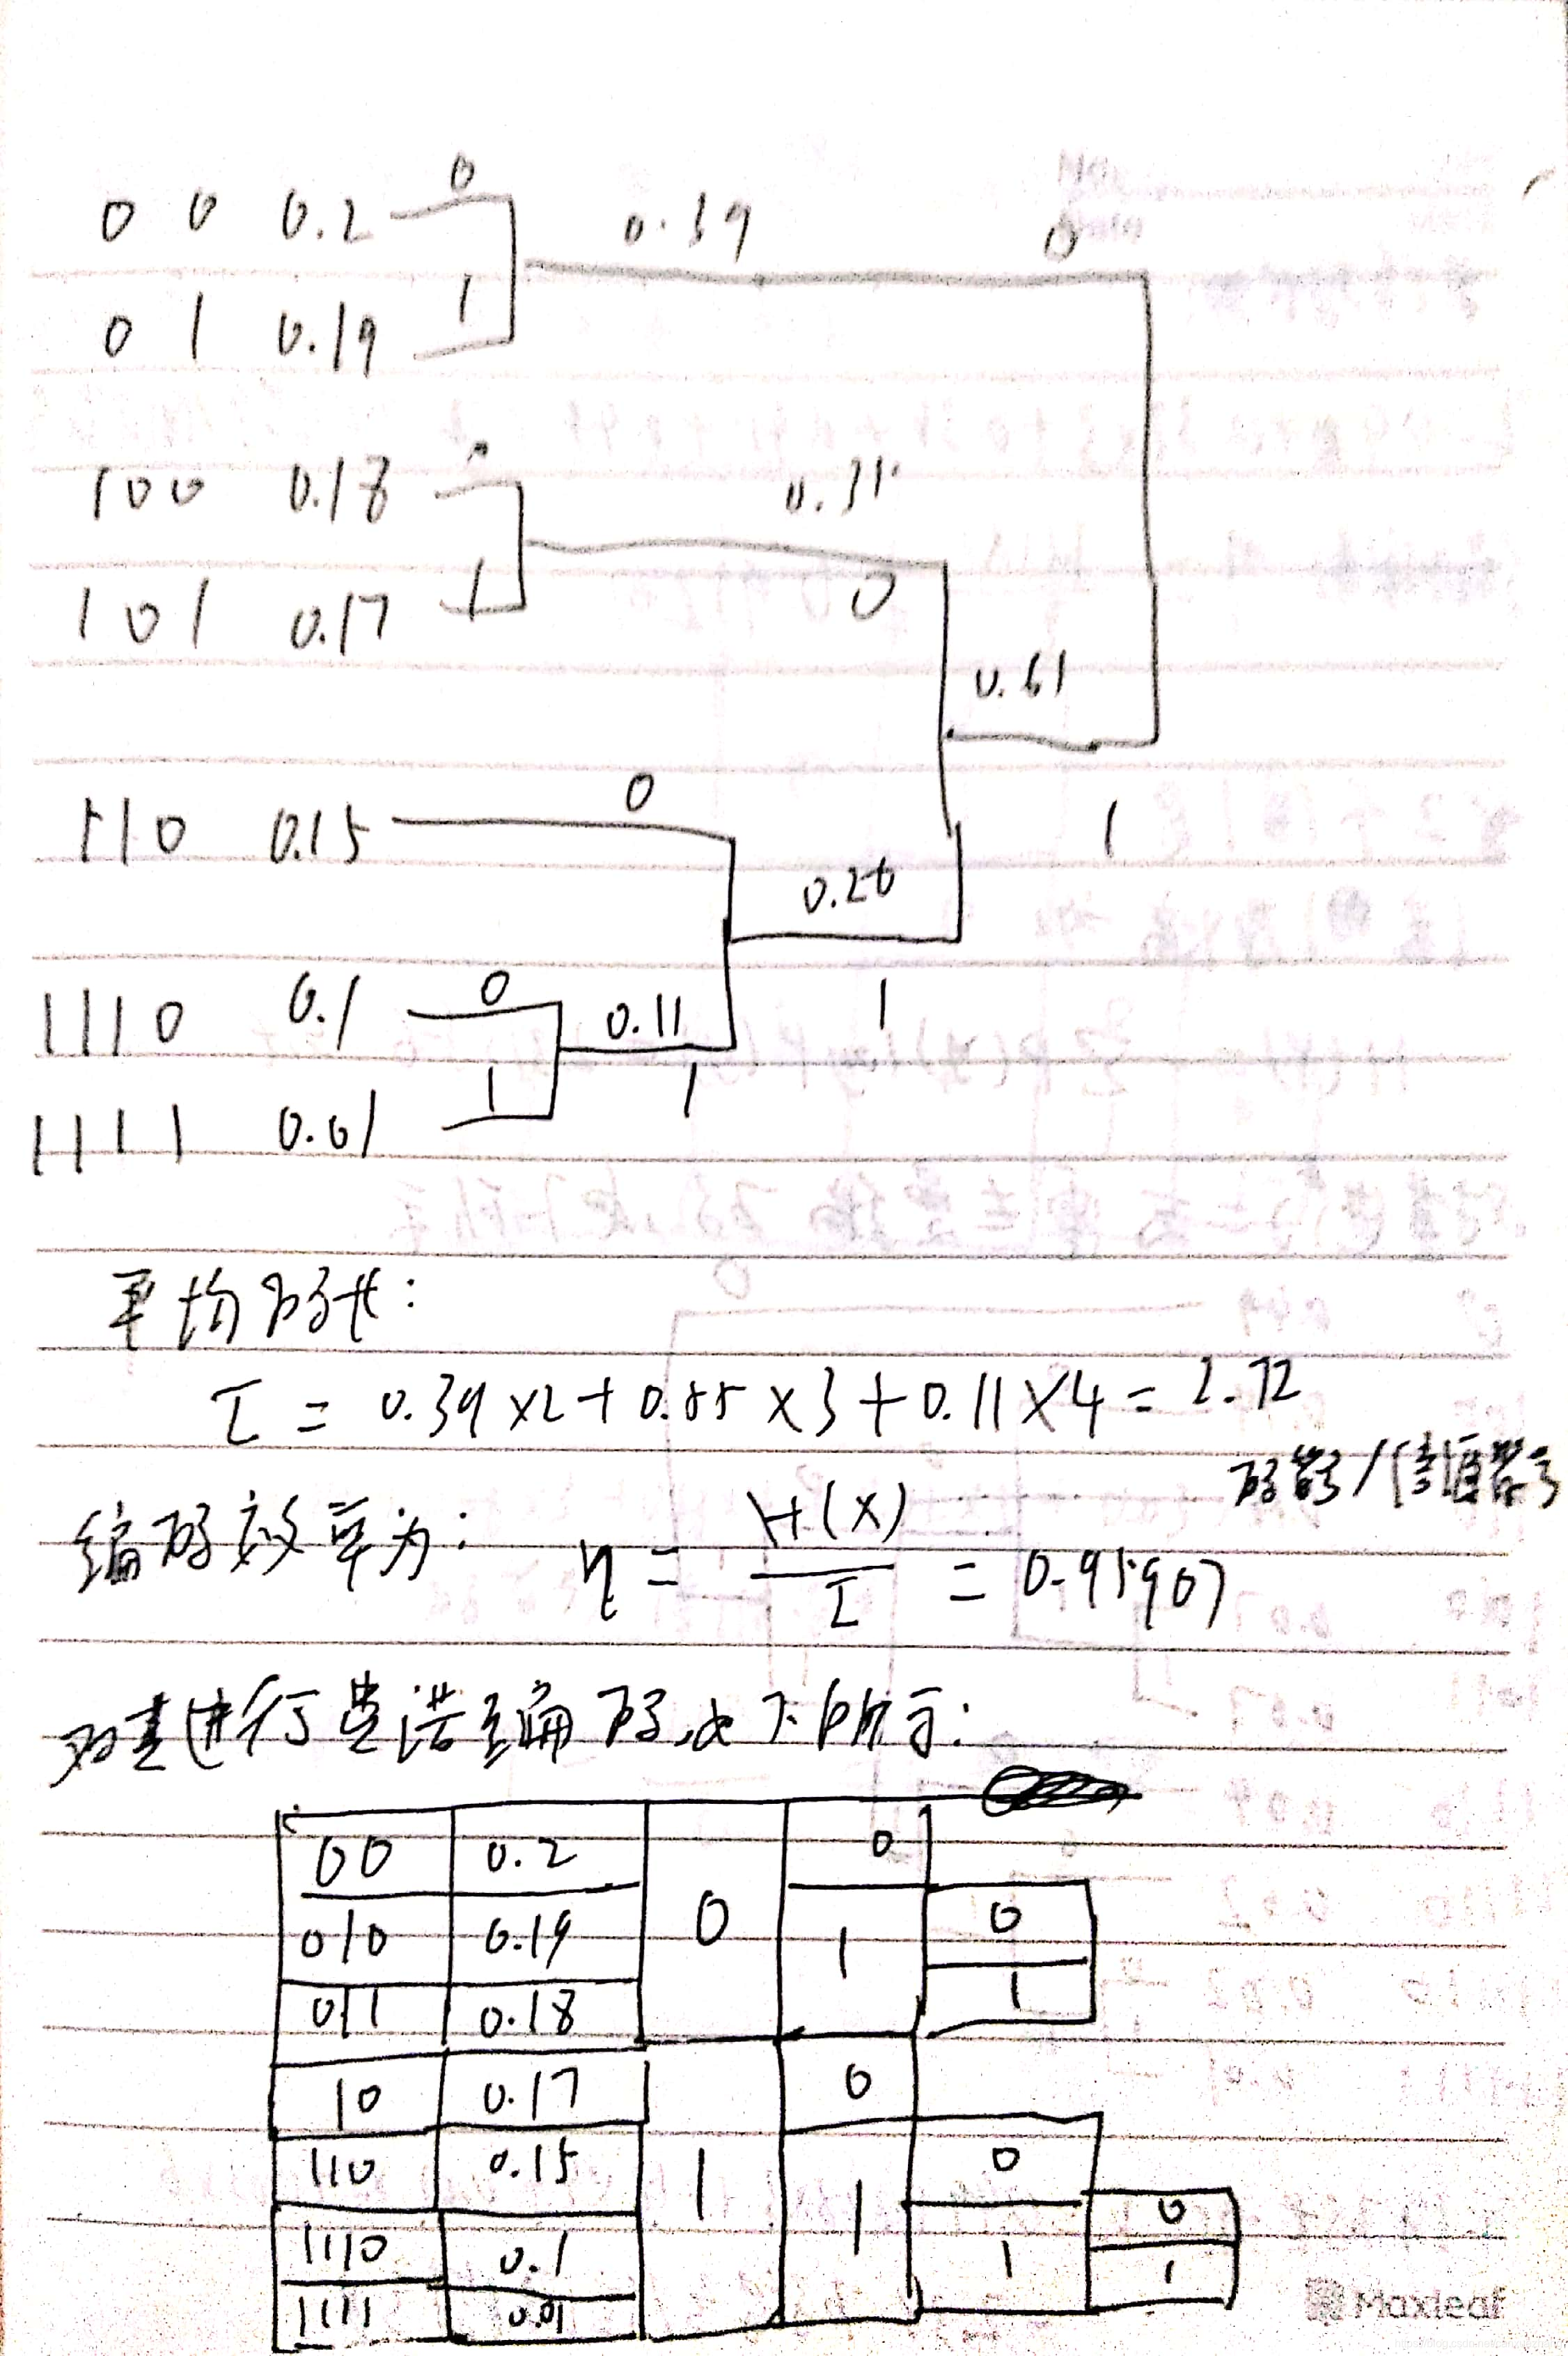 0
0 0 0.2 0.39 0
0 1 0.19 1
100 0.18 0 0.35
101 0.17 1 0
0.61
110 0.15 0 1
0.26
1110 0.1 0 0.11 1
1111 0.01 1 1
平均码长:
L̅ = 0.39×2+0.55×3+0.11×4=2.72
码符/信源符号
编码效率为: η = H(X) / L̅ = 0.95907
对其进行费诺编码,如下所示:
00 0.2 0 0
010 0.19 1 0
011 0.18 1
10 0.17 1 0
110 0.15 1 0
1110 0.1 1 0
1111 0.01 1
Maxleaf